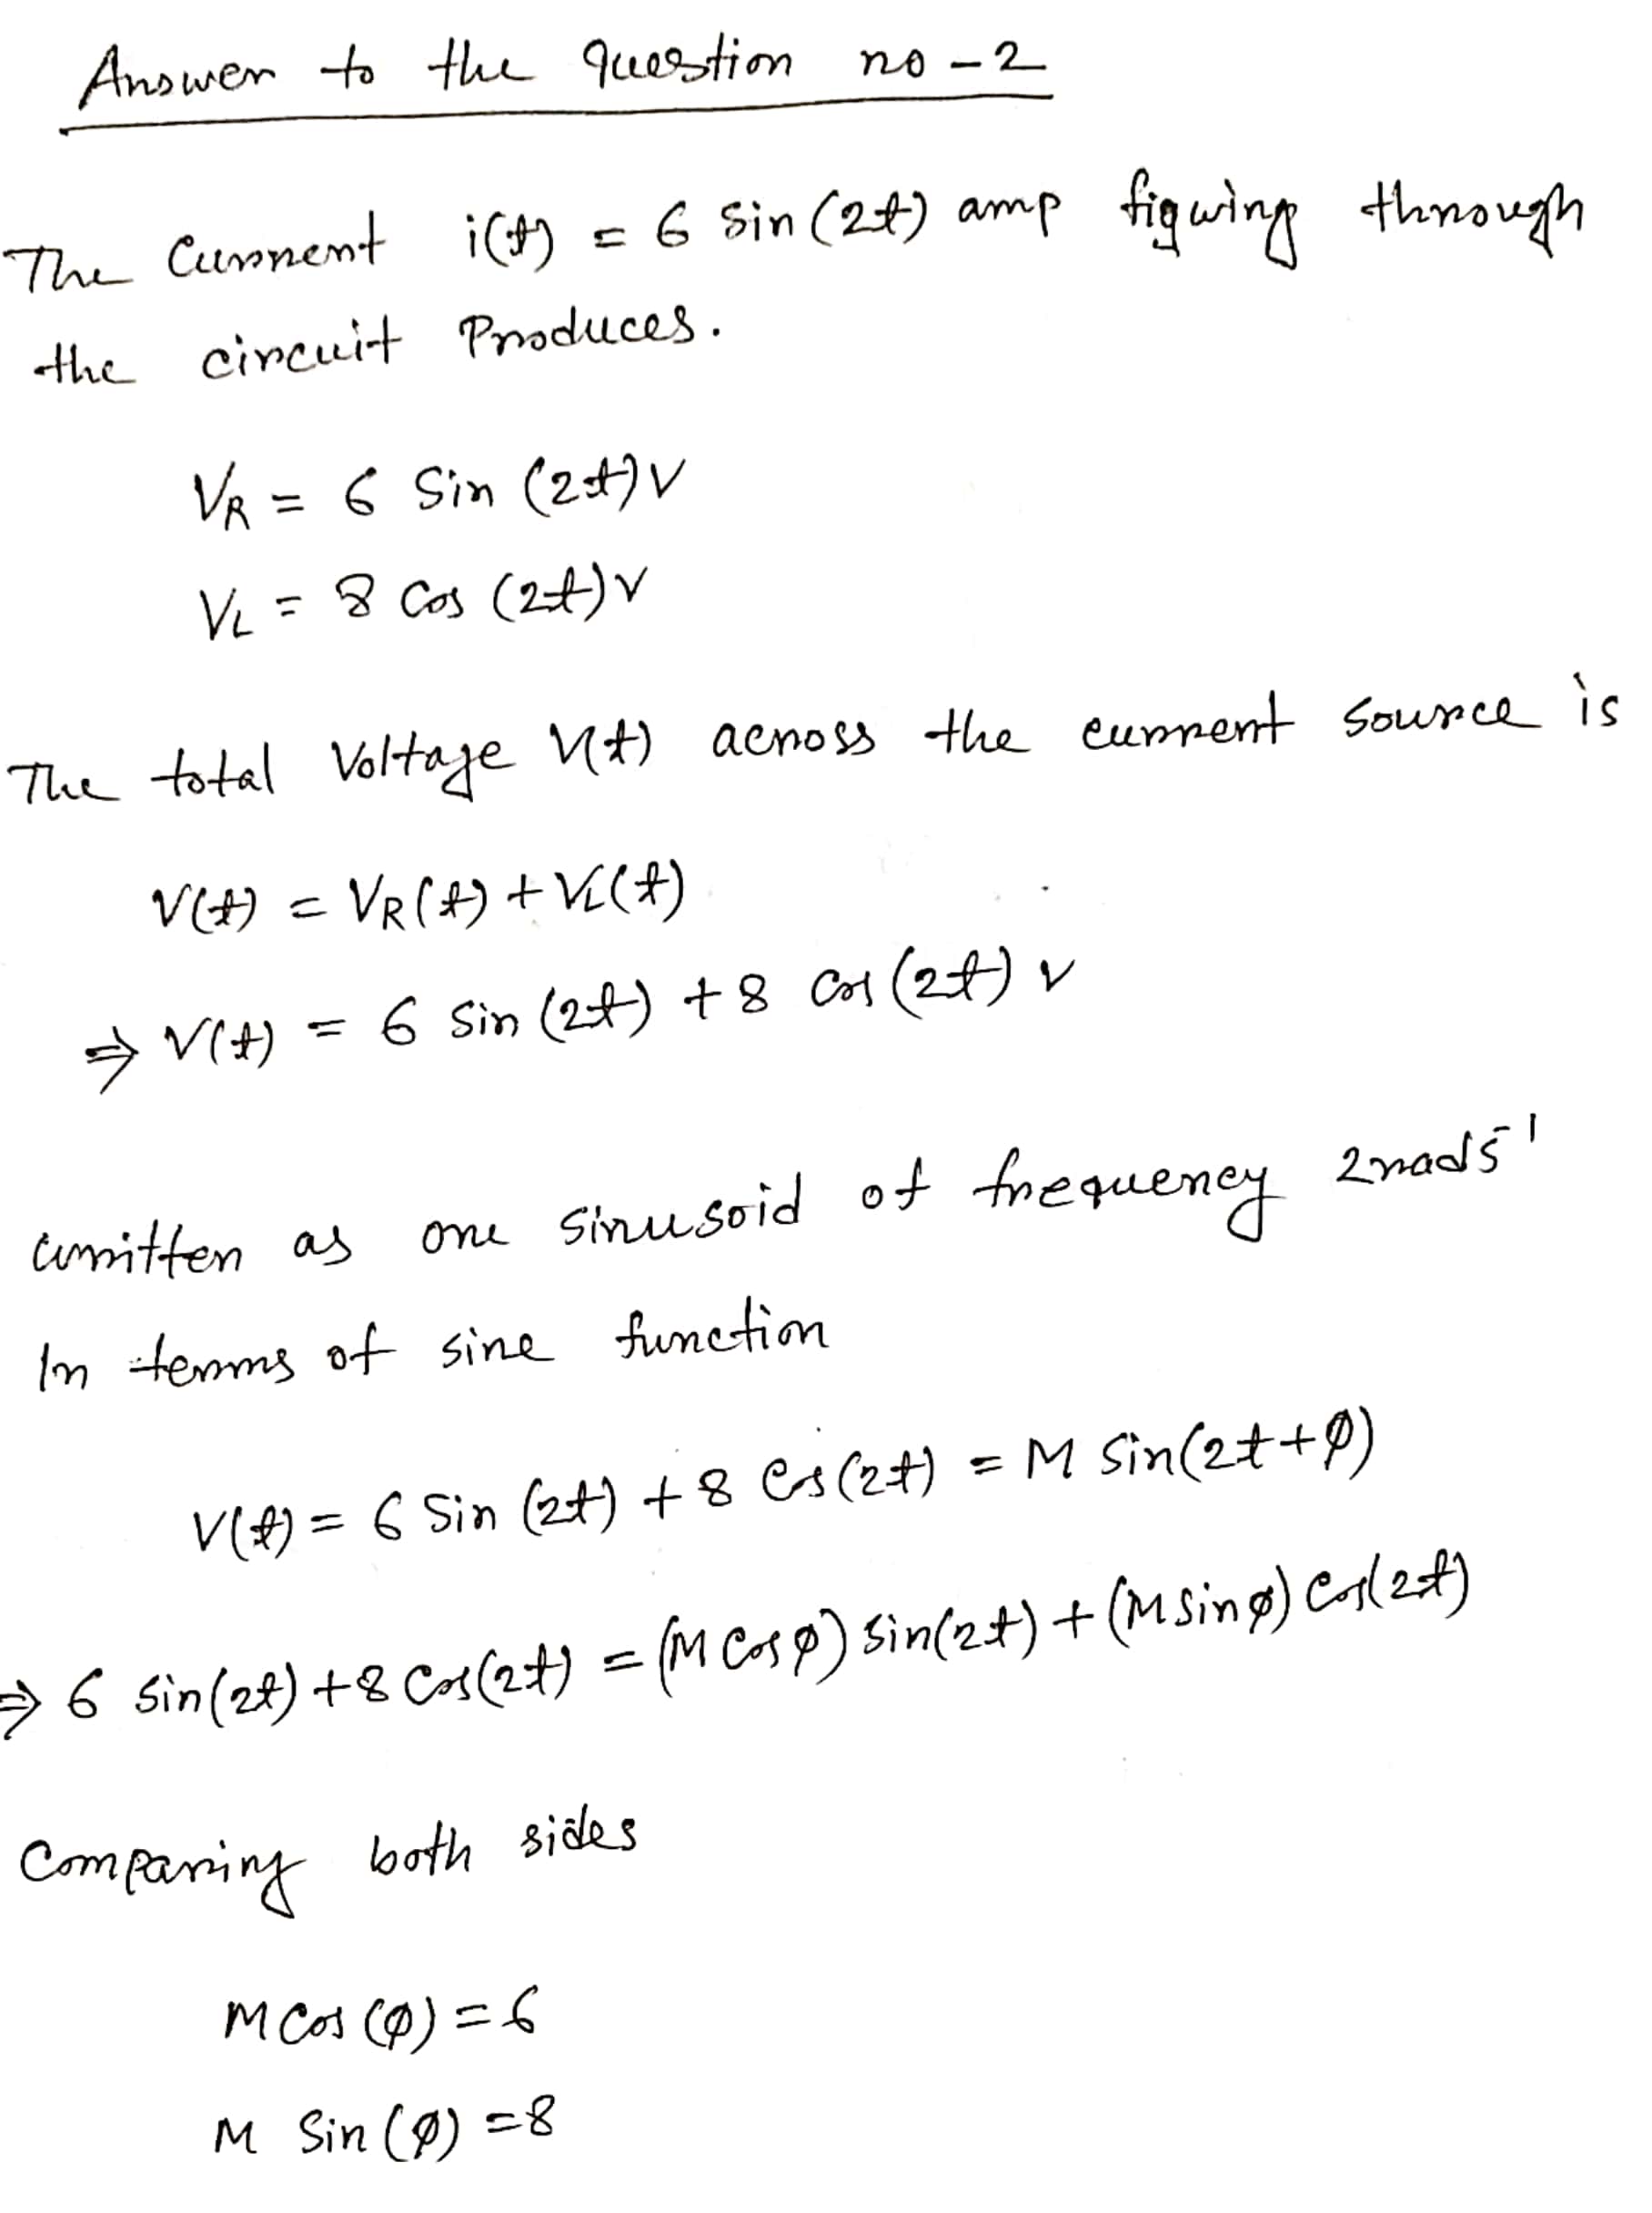 Answer to the question no - 2
The Current i(t) = 6 Sin (2t) amp through
the circuit Produces.
V_R = 6 Sin (2t) V
V_L = 8 Cos (2t) V
The total Voltage V(t) across the current source is
V(t) = V_R(t) + V_L(t)
⇒ V(t) = 6 Sin (2t) + 8 Cos (2t) V
written as one sinusoid of frequency 2rads⁻¹
In terms of sine function
V(t) = 6 Sin (2t) + 8 Cos (2t) = M Sin(2t + φ)
⇒ 6 Sin(2t) + 8 Cos(2t) = (M Cos φ) Sin(2t) + (M Sin φ) Cos(2t)
Comparing both sides
M Cos (φ) = 6
M Sin (φ) = 8